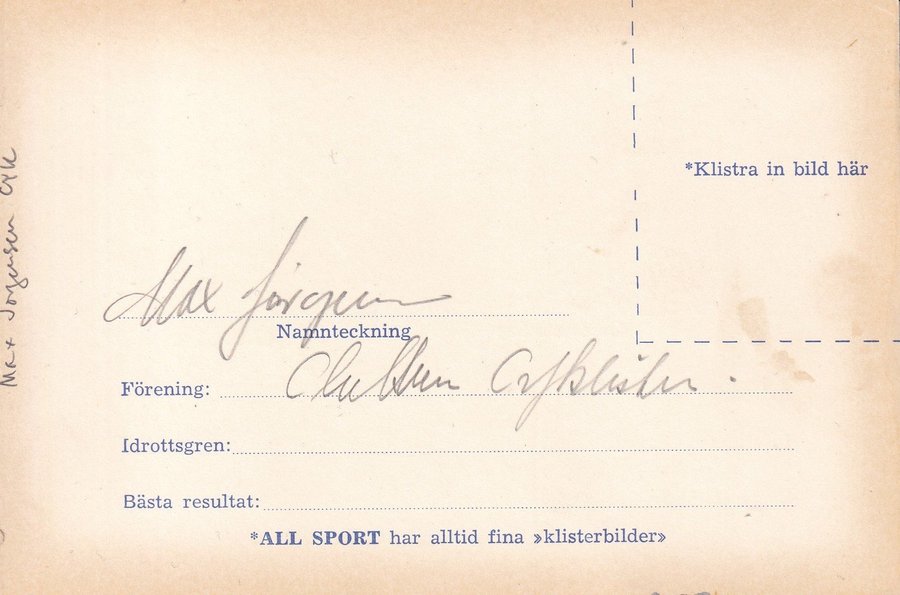 *Klistra in bild här
Max Jörgensen
Namnteckning
Förening: Cyklister.
Idrottsgren:
Bästa resultat:
*ALL SPORT har alltid fina »klisterbilder»
Max Jorgensen Cyk